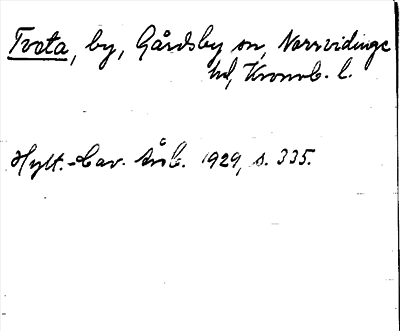 Tveta, by, Gårdsby sn, Norrvidinge
hd, Kronob. l.
Hylt.-Cav. årsb. 1929, s. 335.